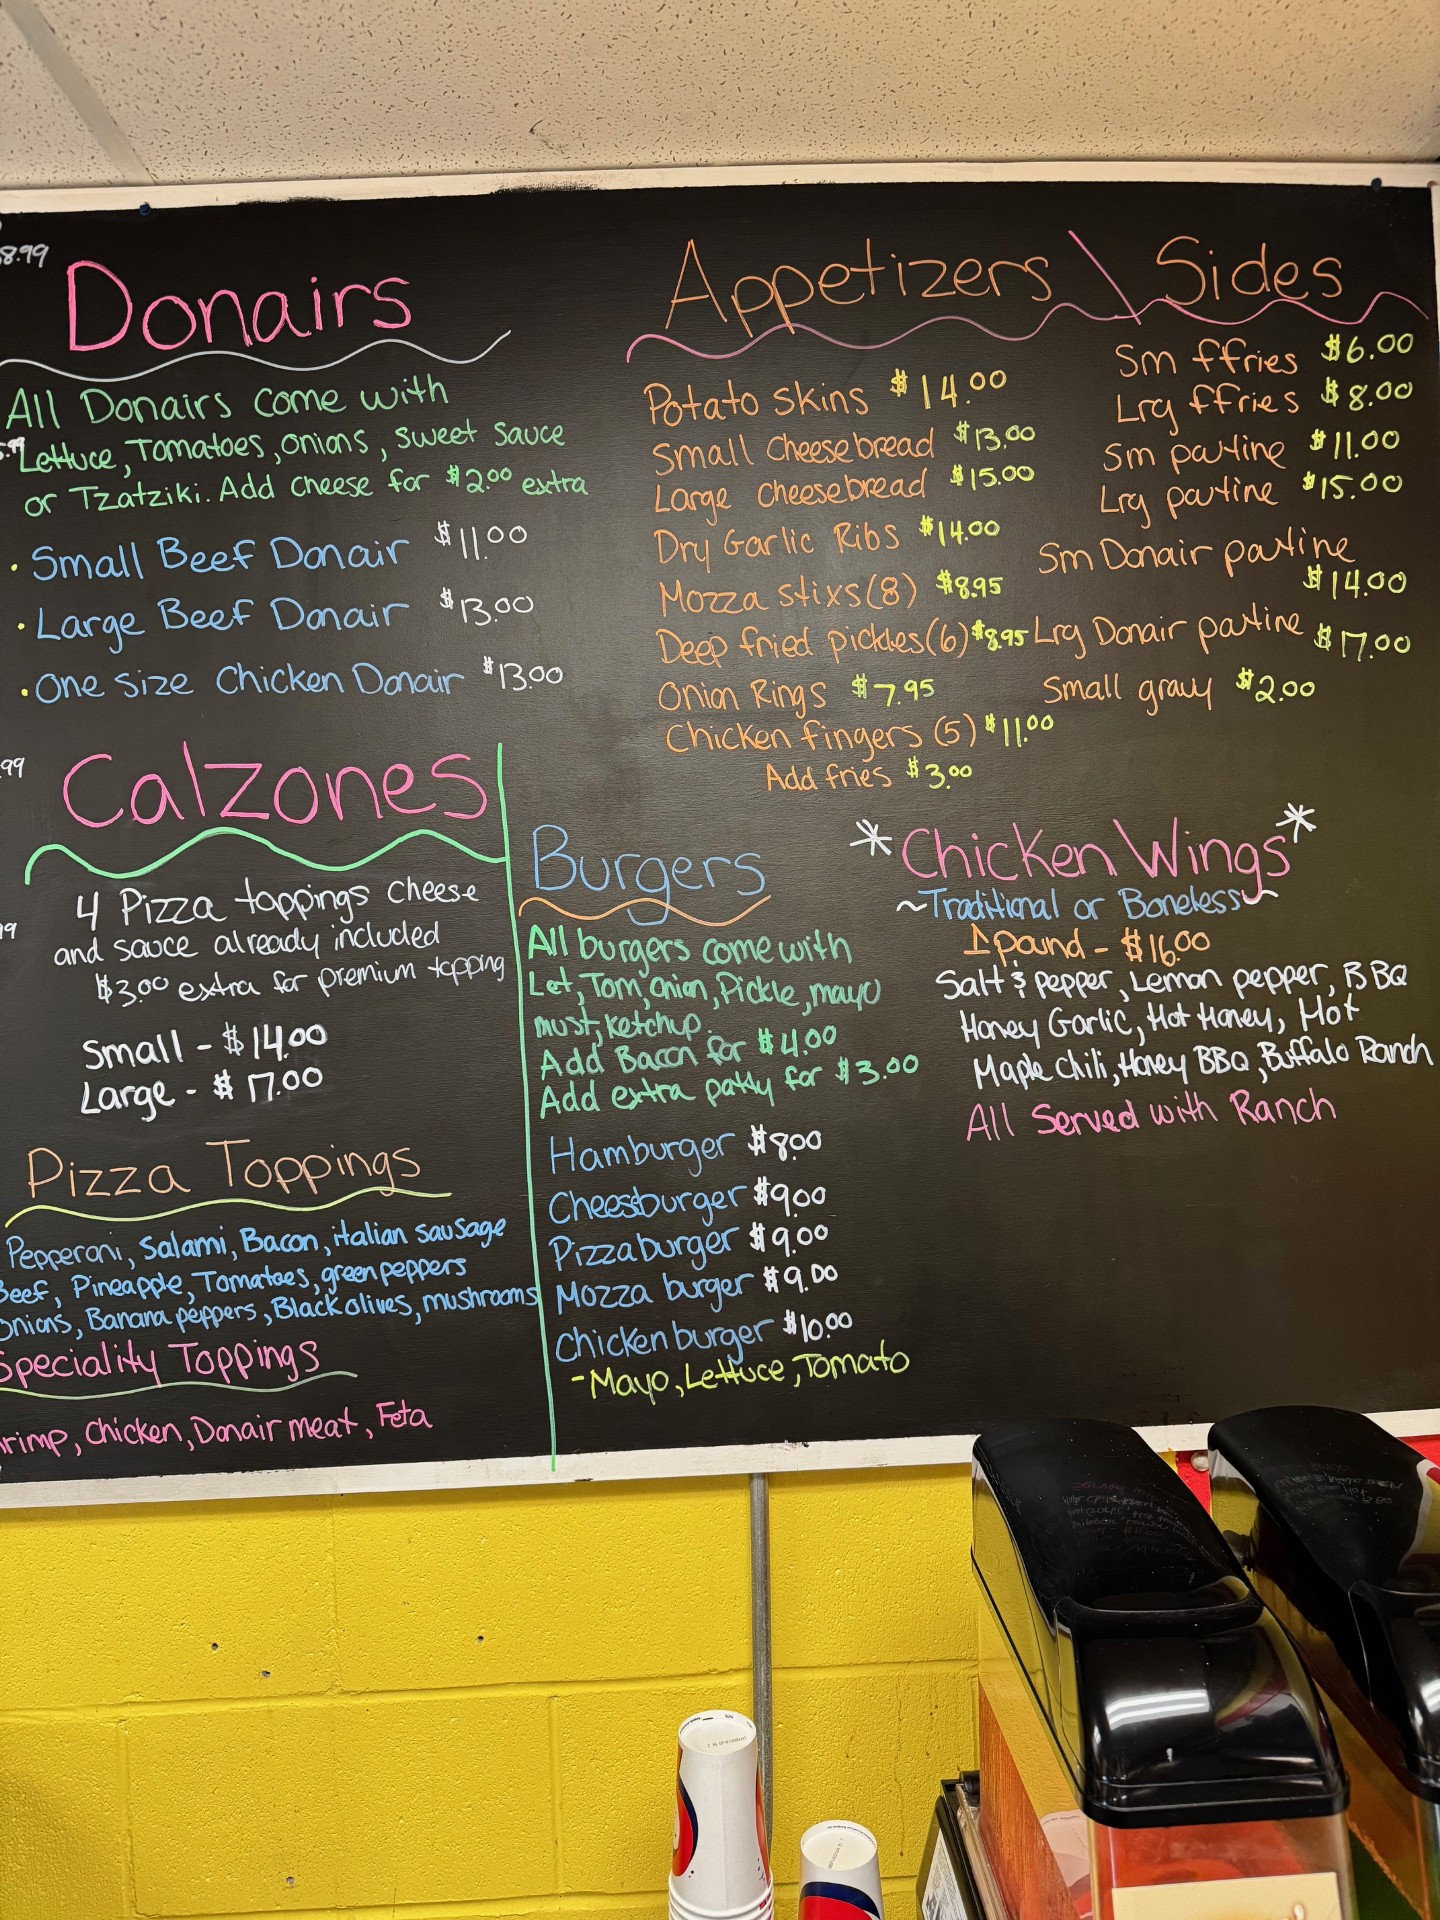 8.99
Donairs
All Donairs come with
Lettuce, Tomatoes, onions, sweet sauce
or Tzatziki. Add cheese for $2.00 extra
• Small Beef Donair $11.00
• Large Beef Donair $13.00
• One size Chicken Donair $13.00
99
Calzones
4 Pizza toppings cheese
and sauce already included
$3.00 extra for premium topping
Small - $14.00
Large - $17.00
Pizza Toppings
Pepperoni, Salami, Bacon, italian sausage
Beef, Pineapple, Tomatoes, green peppers
Onions, Banana peppers, Black olives, mushrooms
Speciality Toppings
rimp, Chicken, Donair meat, Feta
Appetizers \ Sides
Potato skins $14.00
Small Cheesebread $13.00
Large cheesebread $15.00
Dry Garlic Ribs $14.00
Mozza stixs (8) $8.95
Deep fried pickles (6) $8.95
Onion Rings $7.95
Chicken fingers (5) $11.00
Add fries $3.00
Sm ffries $6.00
Lrg ffries $8.00
Sm poutine $11.00
Lrg poutine $15.00
Sm Donair poutine
$14.00
Lrg Donair poutine $17.00
Small gravy $2.00
Burgers
All burgers come with
Let, Tom, onion, Pickle, mayo
must, ketchup.
Add Bacon for $4.00
Add extra patty for $3.00
Hamburger $8.00
Cheesburger $9.00
Pizza burger $9.00
Mozza burger $9.00
Chicken burger $10.00
- Mayo, Lettuce, Tomato
* Chicken Wings *
~Traditional or Boneless~
1 pound - $16.00
Salt & pepper, Lemon pepper, BBQ
Honey Garlic, Hot Honey, Hot
Maple Chili, Honey BBQ, Buffalo Ranch
All Served with Ranch